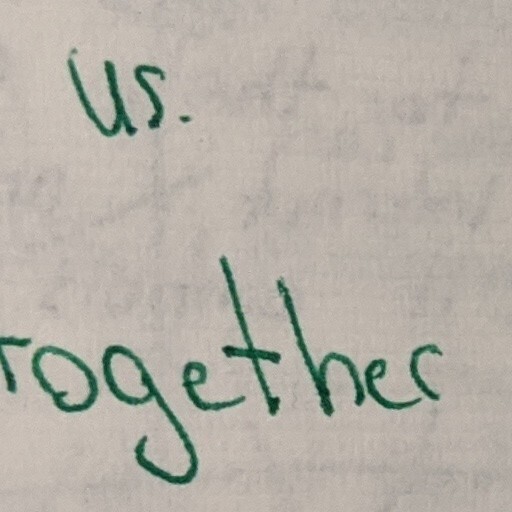 us.
Together